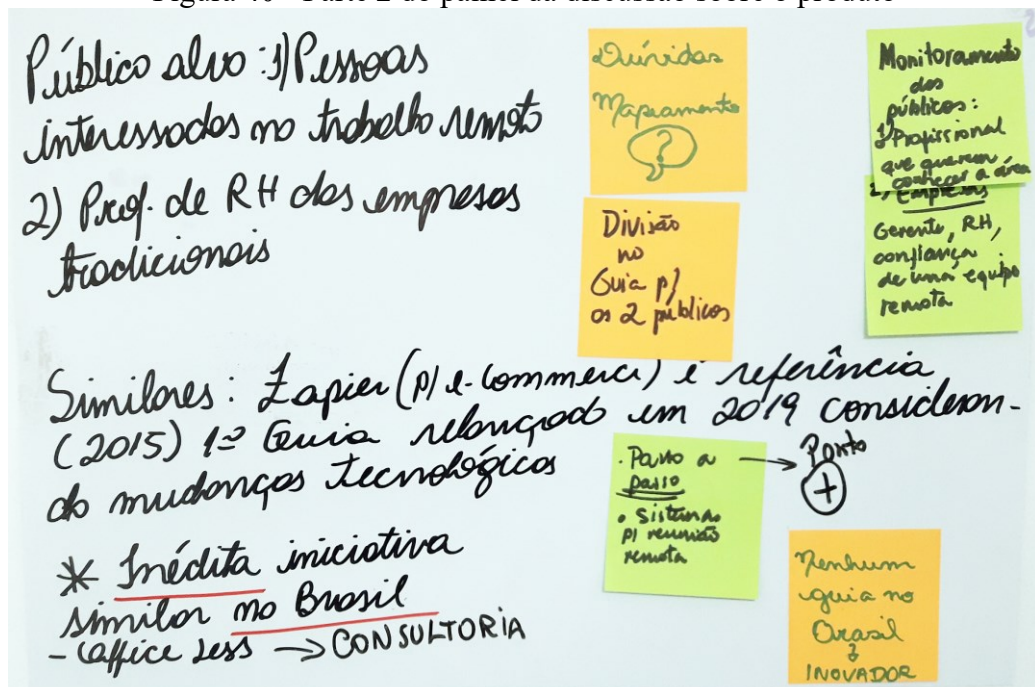 Público alvo: 1) Pessoas
interessadas no trabalho remoto
2) Prof. de RH das empresas
tradicionais
Dúvidas
Mapeamento
?
Divisão
no
Guia p/
os 2 públicos
Monitoramento
dos
públicos:
1) Profissional
que querem
conhecer a área
2) Empresas
Gerente, RH,
confiança
de uma equipe
remota
Similares: Zapier (p/ e-commerce) é referência
(2015) 1º Guia relançado em 2019 consideran-
do mudanças tecnológicas
. Passo a
passo
. Sistemas
p/ reunião
remota
→ Ponto
+
* Inédita iniciativa
similar no Brasil
- Office Less → CONSULTORIA
Nenhum
guia no
Brasil
↓
INOVADOR